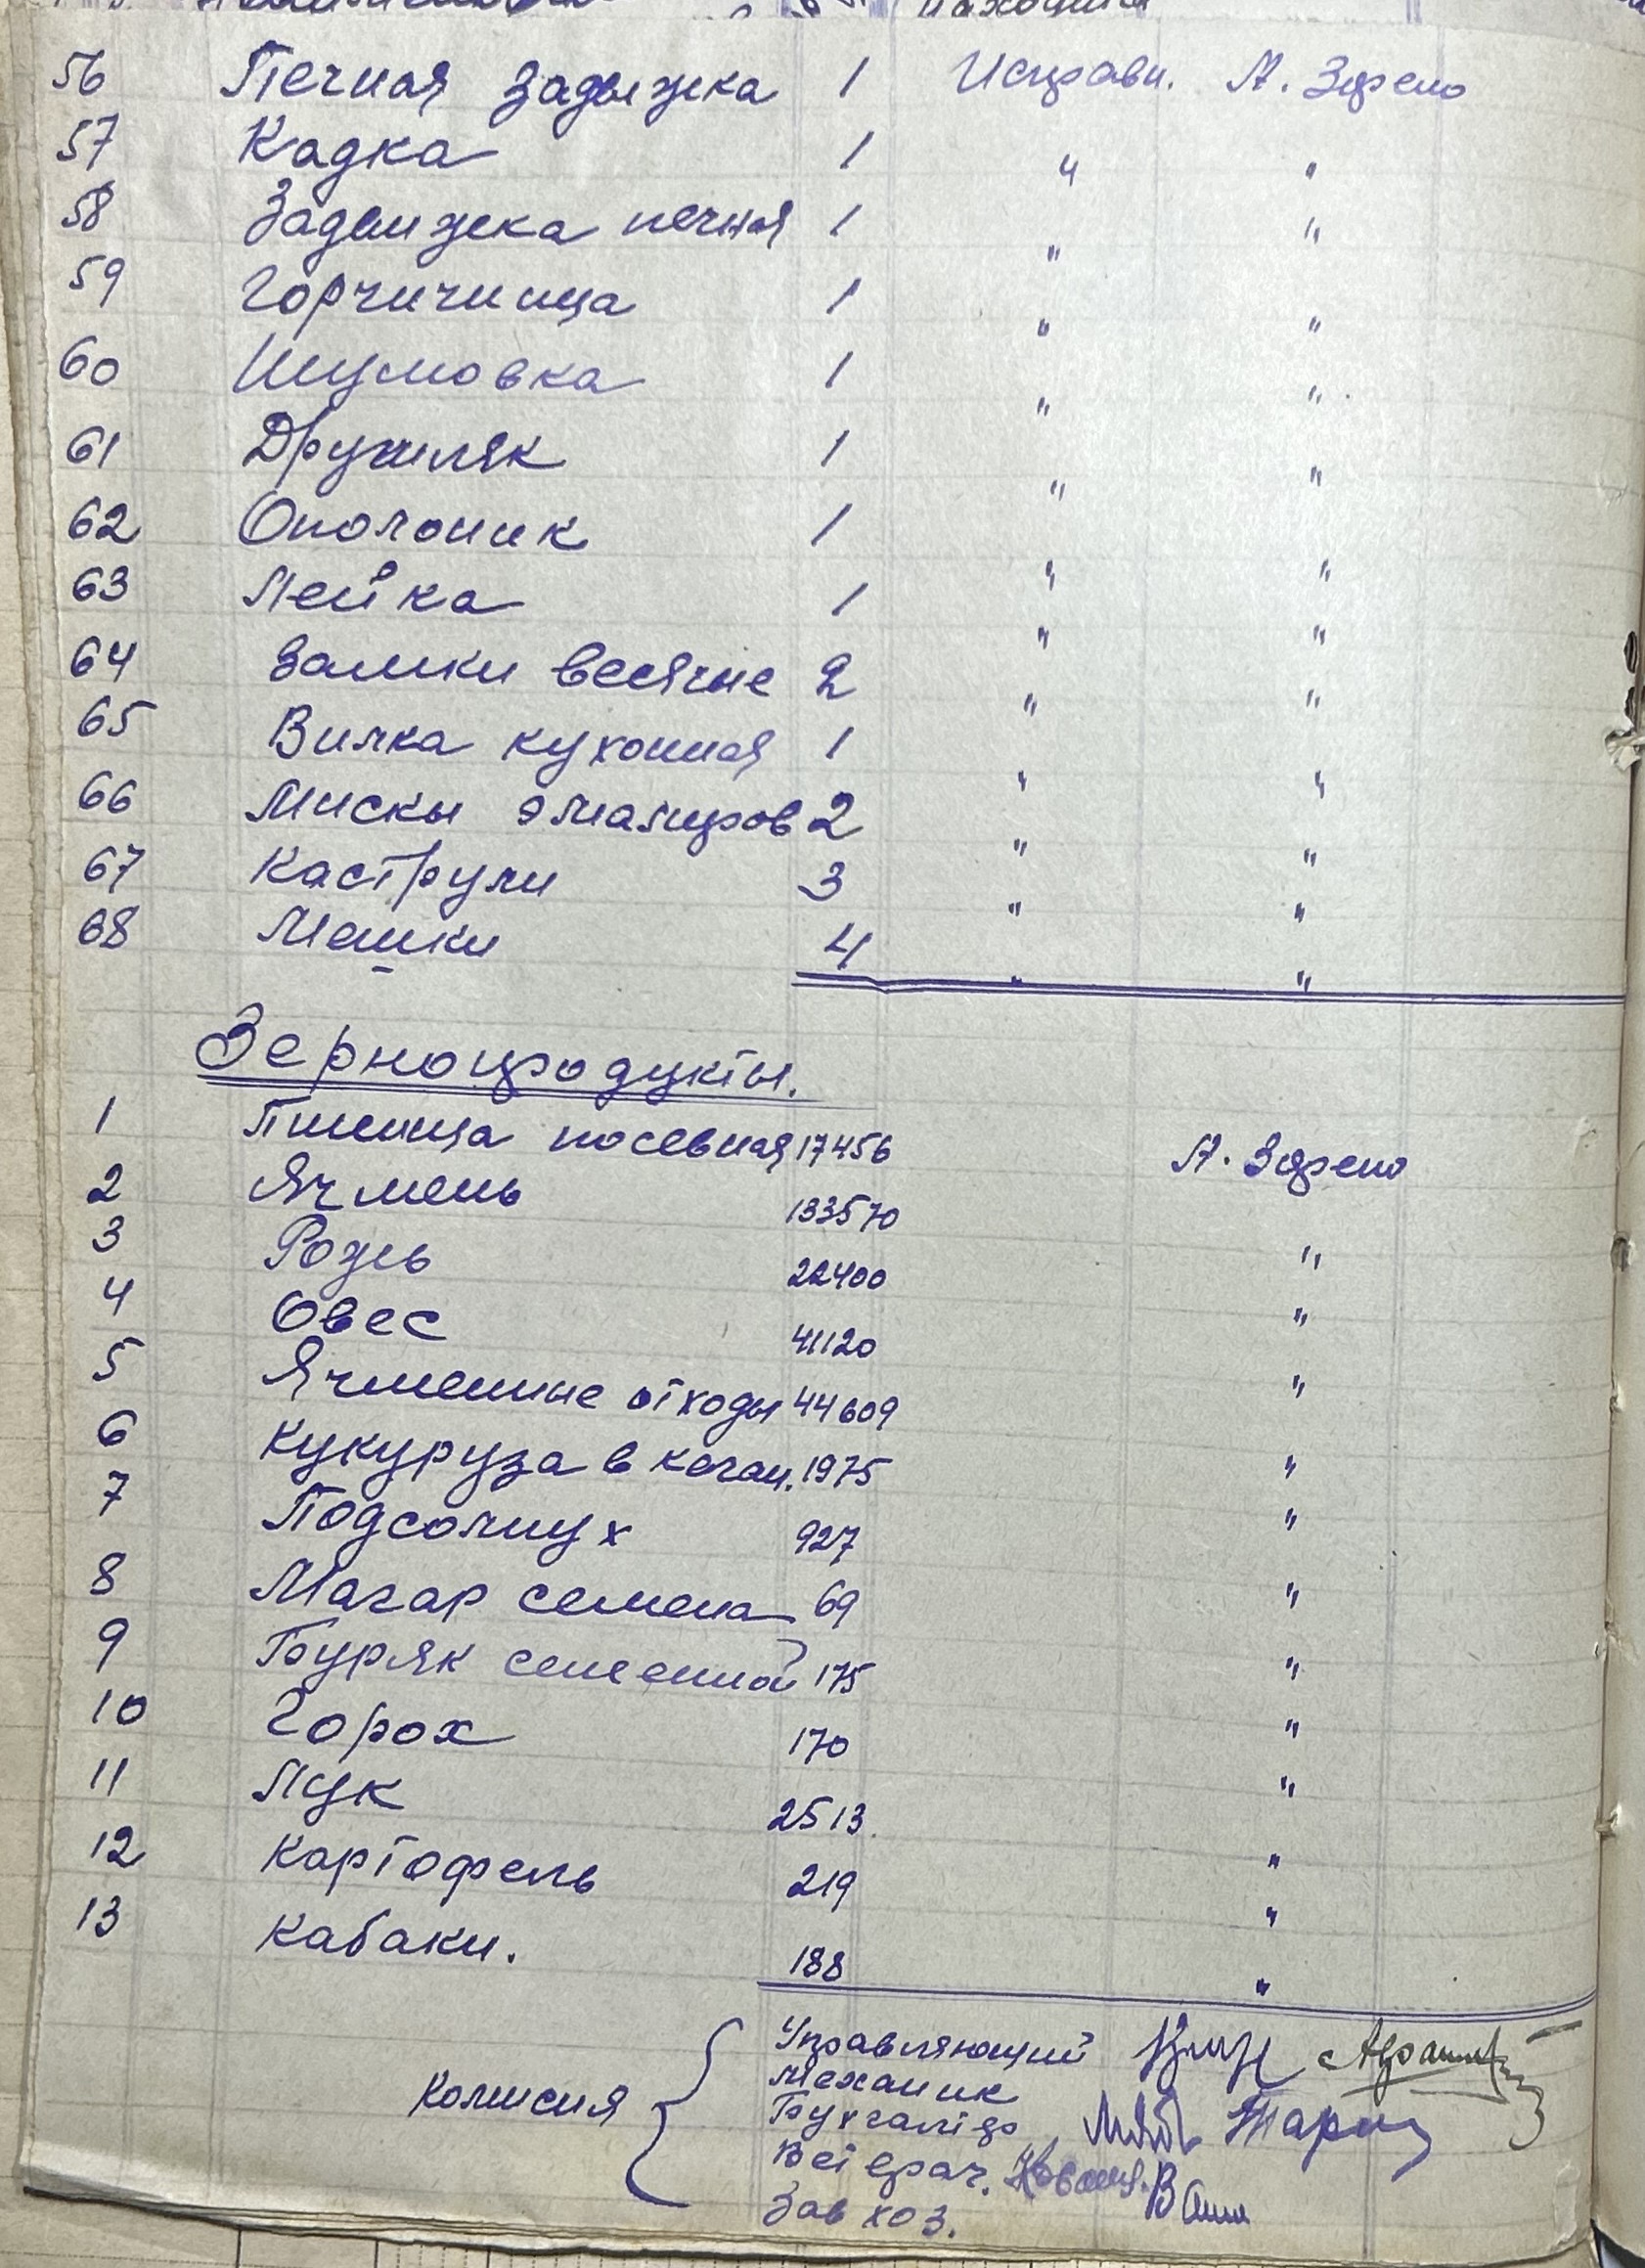 56 Печная задвижка 1 Исправн. А. Здрено
57 Кадка 1 " "
58 Задвижка печная 1 " "
59 Горчичница 1 " "
60 Шумовка 1 " "
61 Друшляк 1 " "
62 Ополоник 1 " "
63 Лейка 1 " "
64 Замки весячие 2 " "
65 Вилка кухонная 1 " "
66 Мискы эмалиров 2 " "
67 Каструли 3 " "
68 Мешки 4 " "
Зернопродукты.
1 Пшеница посевная 17456 А. Здрено
2 Ячмень 133570 "
3 Рожь 22400 "
4 Овес 41120 "
5 Ячменные отходы 44609 "
6 Кукуруза в кочан. 1975 "
7 Подсолнух 927 "
8 Магар семена 69 "
9 Буряк семенной 175 "
10 Горох 170 "
11 Лук 2513. "
12 Картофель 219 "
13 Кабаки. 188 "
Комисия
Управляющий
Механик
Бухгалтер
Вет врач.
Зав хоз.